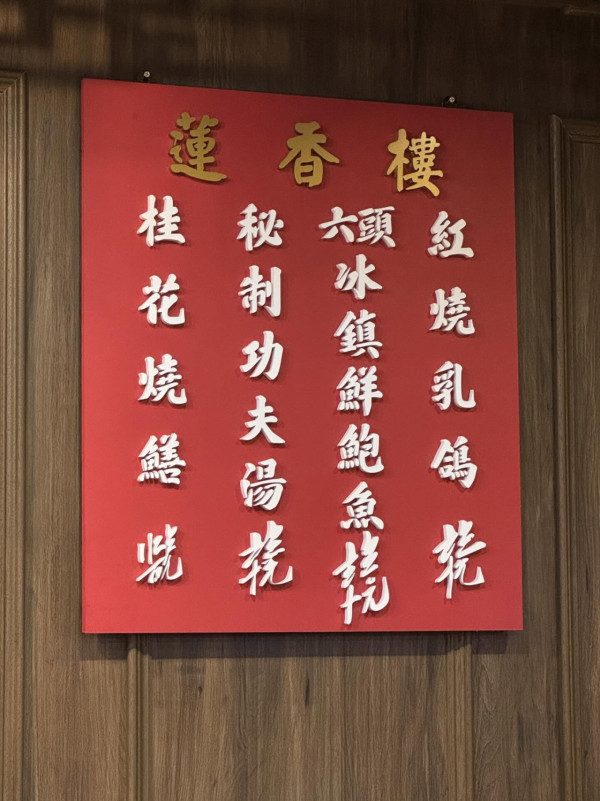 蓮香樓
紅燒乳鴿
六頭冰鎮鮮鮑魚
秘制功夫湯
桂花燒鱔